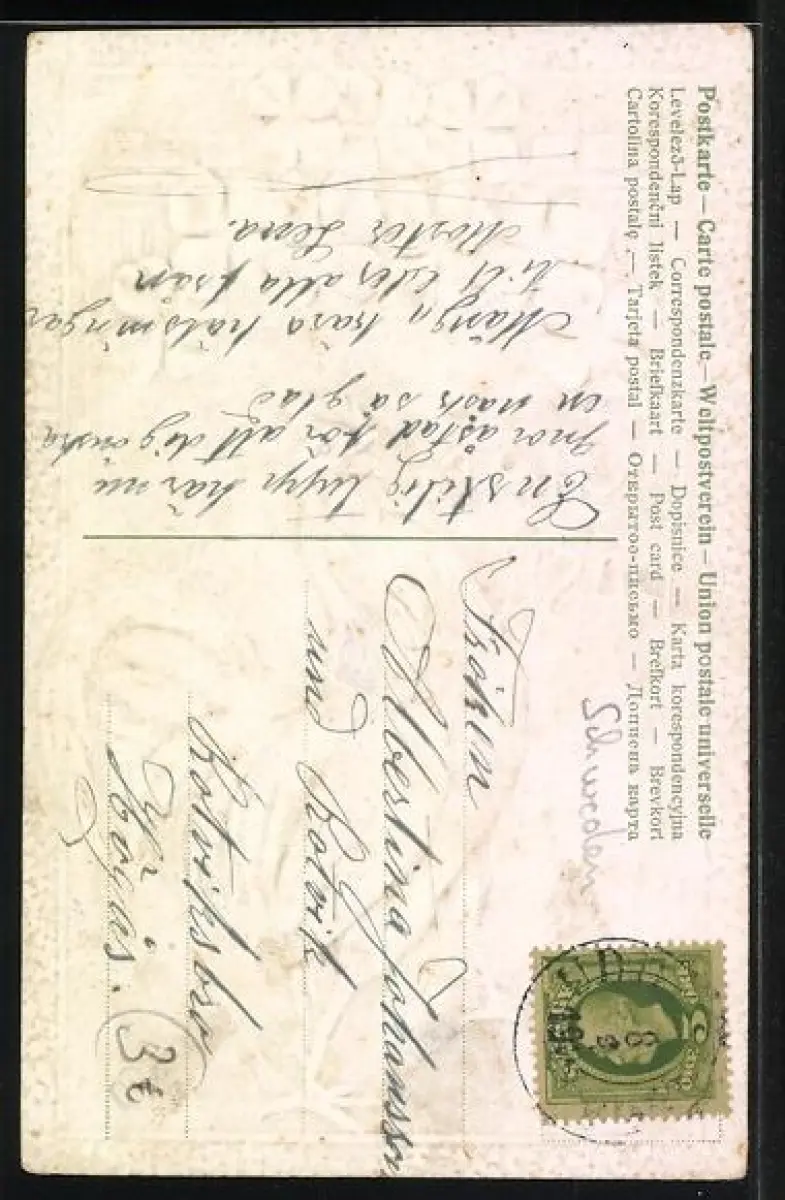 Postkarte — Carte postale — Weltpostverein — Union postale universelle
Levelező-Lap — Correspondenzkarte — Dopisnice — Karta korespondencyjna
Korespondenční lístek — Briefkaart — Post card — Brefkort — Brevkort
Cartolina postale — Tarjeta postal — Открытое письмо — Дописна карта
En stilig tupp här nu
för att dig önska
en så glad
Många kära hälsningar
till Eder alla från
Moster Lena.
Schweden
Fröken
Albertina Johansson
und Rotvik
Rotviksbro
Högås.
3€
8